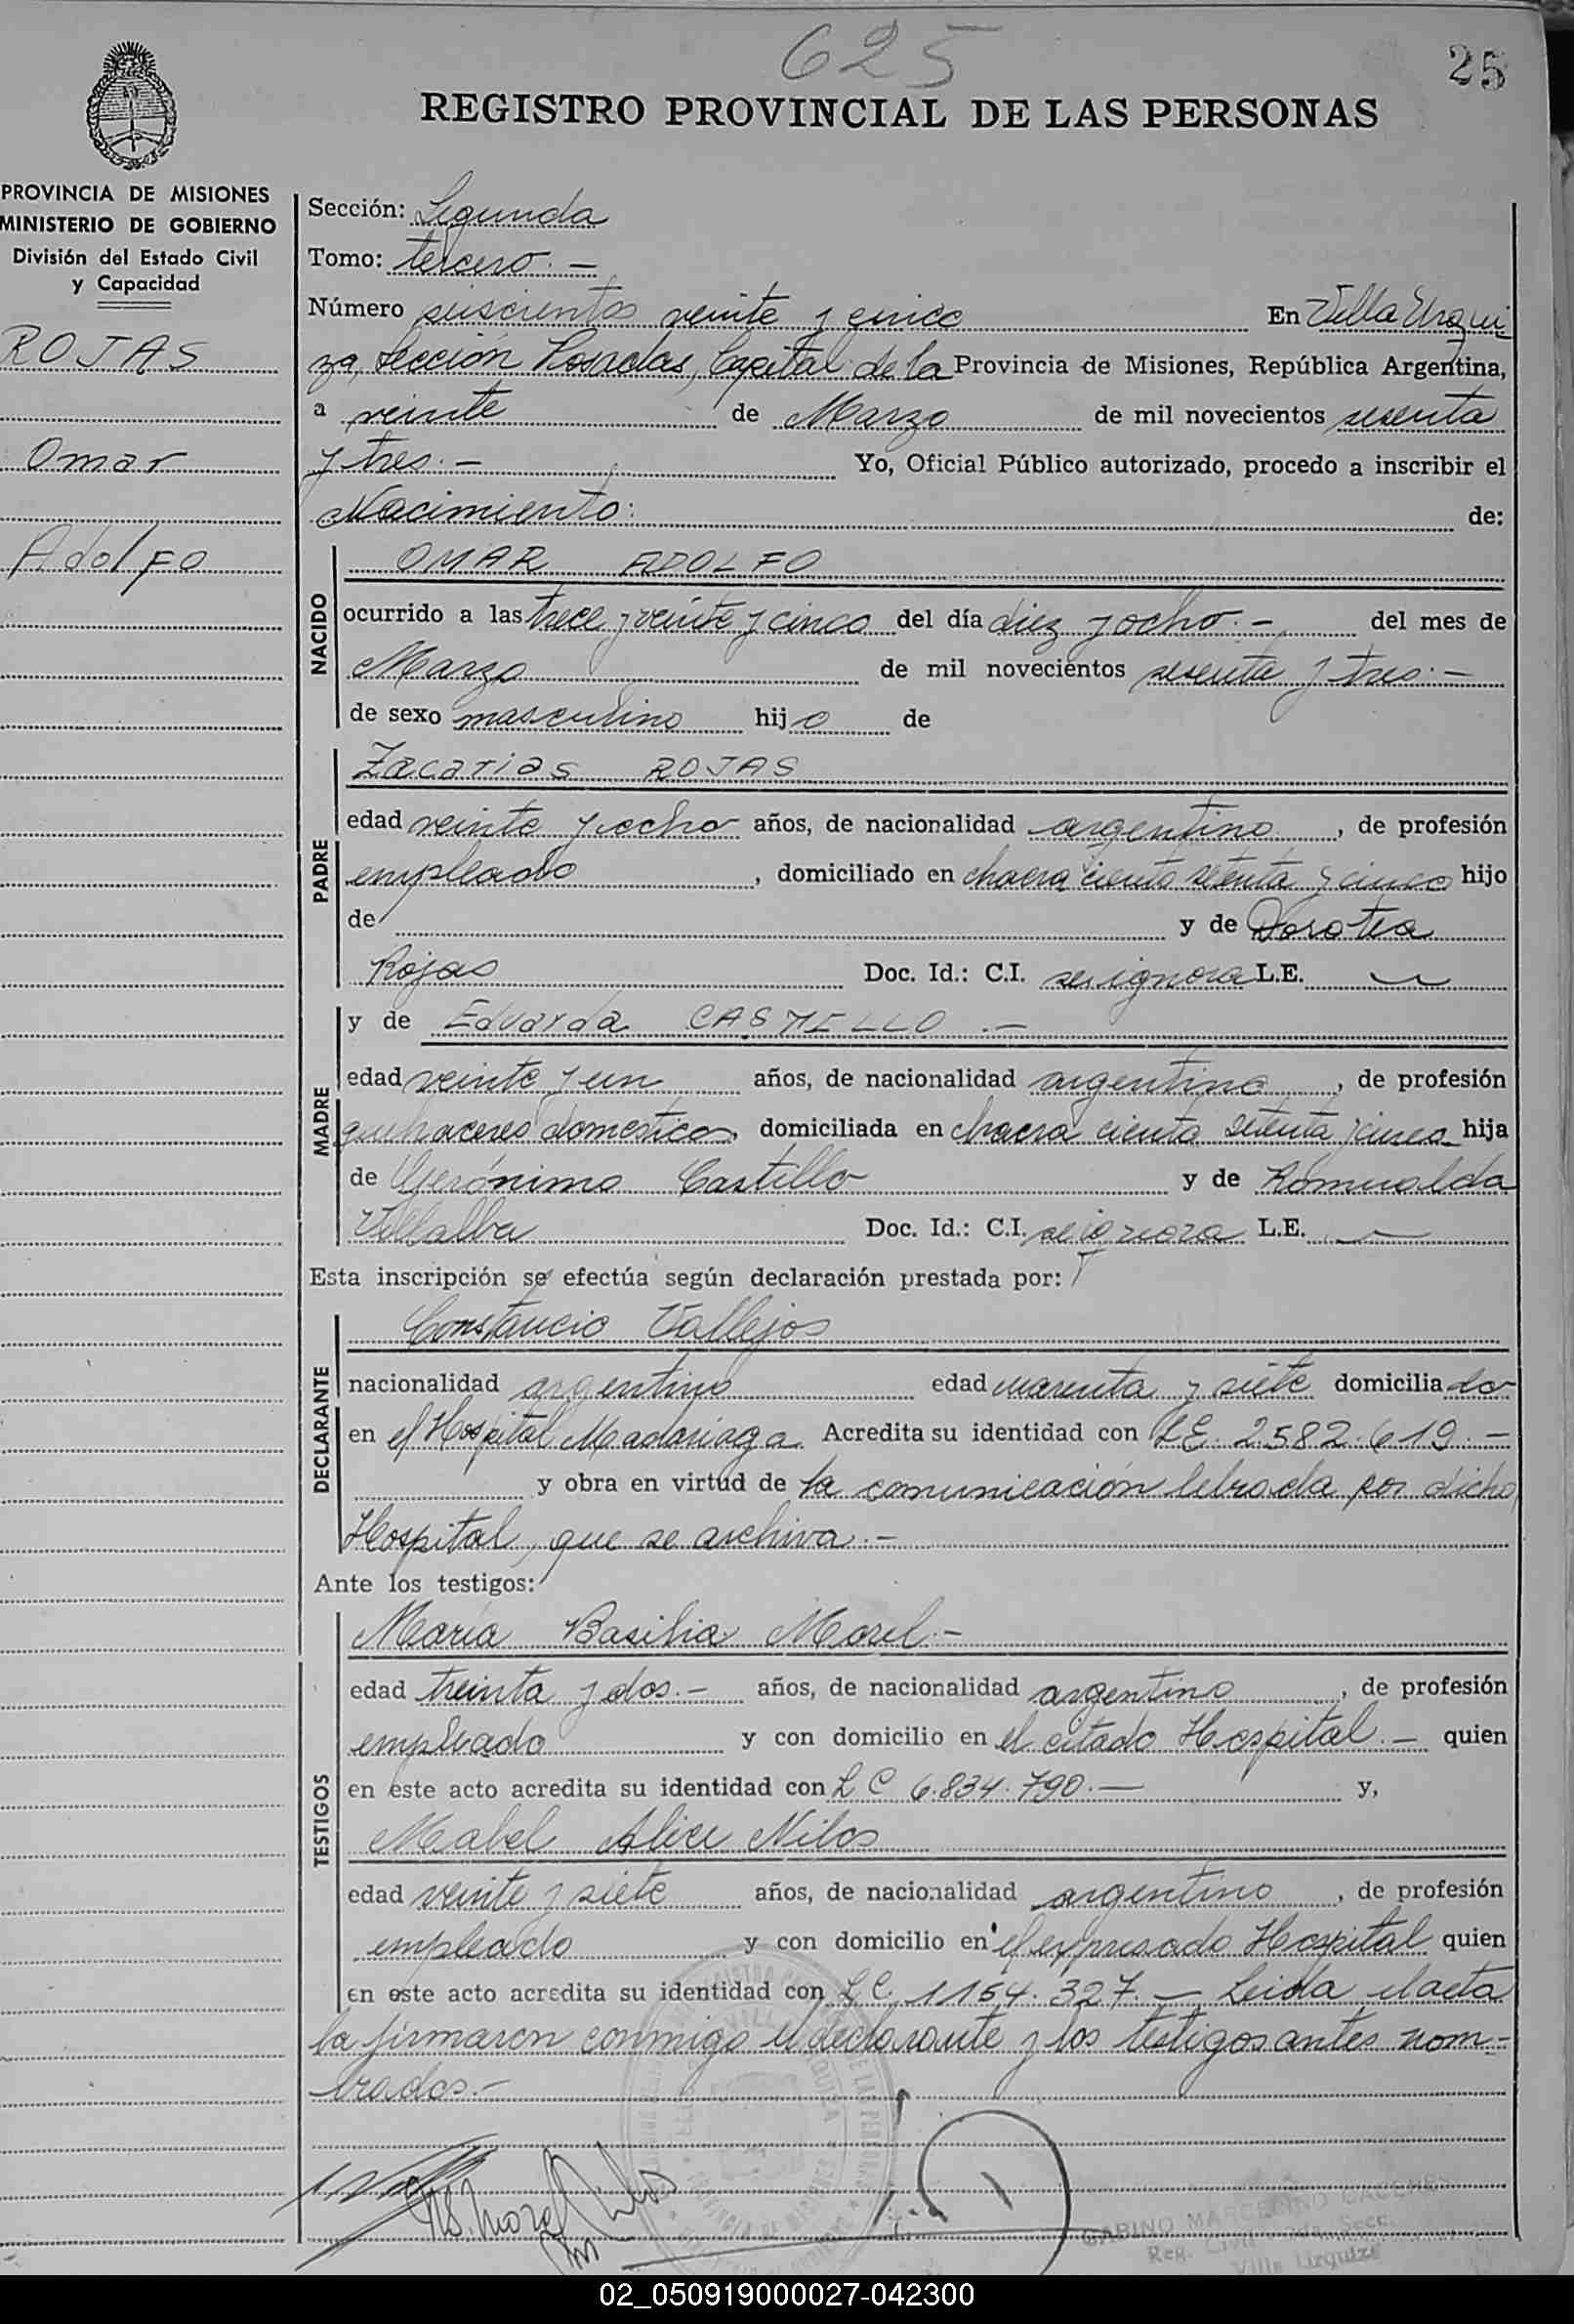 625
25
REGISTRO PROVINCIAL DE LAS PERSONAS
PROVINCIA DE MISIONES
MINISTERIO DE GOBIERNO
División del Estado Civil
y Capacidad
ROJAS
Omar
Adolfo
Sección: Segunda
Tomo: tercero.-
Número seiscientos veinte y cinco En Villa Urqui
za, Sección Posadas, Capital de la Provincia de Misiones, República Argentina,
a veinte de Marzo de mil novecientos sesenta
y tres.- Yo, Oficial Público autorizado, procedo a inscribir el
Nacimiento: de:
NACIDO
OMAR ADOLFO
ocurrido a las trece y veinte y cinco del día diez y ocho.- del mes de
Marzo de mil novecientos sesenta y tres.-
de sexo masculino hijo de
PADRE
Zacarias ROJAS
edad veinte y ocho años, de nacionalidad argentino, de profesión
empleado, domiciliado en chacra ciento setenta y cinco hijo
de y de Dorotea
Rojas Doc. Id.: C.I. se ignora L.E.
MADRE
y de Eduarda CASTILLO.-
edad veinte y un años, de nacionalidad argentina, de profesión
quehaceres domesticos, domiciliada en chacra ciento setenta y cinco hija
de Gerónimo Castillo y de Romualda
Villalba Doc. Id.: C.I. se ignora L.E.
Esta inscripción se efectúa según declaración prestada por:
DECLARANTE
Constancio Vallejos
nacionalidad argentino edad cuarenta y siete domiciliado
en el Hospital Madariaga. Acredita su identidad con L.E. 2.582.619.-
y obra en virtud de la comunicación librada por dicho
Hospital, que se archiva.-
Ante los testigos:
TESTIGOS
María Basilia Morel.-
edad treinta y dos.- años, de nacionalidad argentino, de profesión
empleado y con domicilio en el citado Hospital.- quien
en este acto acredita su identidad con L C 6.834.790.- y,
Mabel Alice Nilos
edad veinte y siete años, de nacionalidad argentino, de profesión
empleado y con domicilio en el expresado Hospital quien
en este acto acredita su identidad con L C. 1154.327.- Leida el acta
la firmaron conmigo el declarante y los testigos antes nom-
brados.-
GABINO MARCELINO CACERES
Reg. Civil 2da. Secc.
Villa Urquiza
02_050919000027-042300